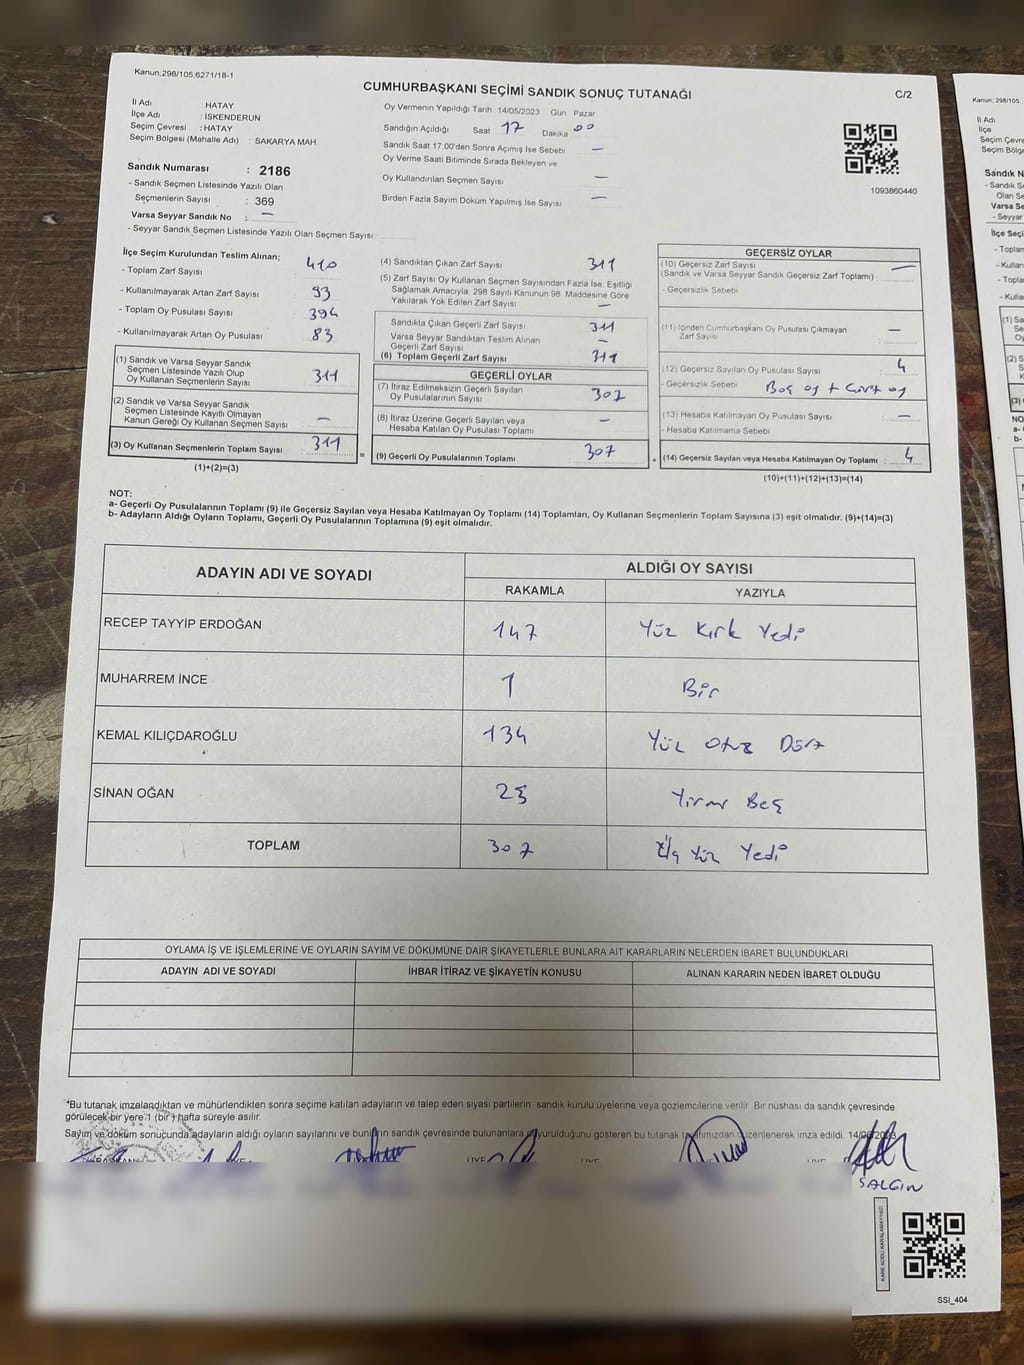 Kanun;298/105,6271/18-1
CUMHURBAŞKANI SEÇİMİ SANDIK SONUÇ TUTANAĞI
C/2
İl Adı : HATAY
İlçe Adı : İSKENDERUN
Seçim Çevresi : HATAY
Seçim Bölgesi (Mahalle Adı) : SAKARYA MAH.
Sandık Numarası : 2186
- Sandık Seçmen Listesinde Yazılı Olan
Seçmenlerin Sayısı : 369
Varsa Seyyar Sandık No : –
- Seyyar Sandık Seçmen Listesinde Yazılı Olan Seçmen Sayısı:
Oy Vermenin Yapıldığı Tarih :14/05/2023 Gün : Pazar
Sandığın Açıldığı Saat 17 Dakika 00
Sandık Saat 17:00'den Sonra Açımış İse Sebebi –
Oy Verme Saati Bitiminde Sırada Bekleyen ve
Oy Kullandırılan Seçmen Sayısı –
Birden Fazla Sayım Döküm Yapılmış İse Sayısı –
1093860440
İlçe Seçim Kurulundan Teslim Alınan;
- Toplam Zarf Sayısı 410
- Kullanılmayarak Artan Zarf Sayısı 93
- Toplam Oy Pusulası Sayısı 394
- Kullanılmayarak Artan Oy Pusulası 83
(1) Sandık ve Varsa Seyyar Sandık
Seçmen Listesinde Yazılı Olup
Oy Kullanan Seçmenlerin Sayısı 311
(2) Sandık ve Varsa Seyyar Sandık
Seçmen Listesinde Kayıtlı Olmayan
Kanun Gereği Oy Kullanan Seçmen Sayısı –
(3) Oy Kullanan Seçmenlerin Toplam Sayısı 311
(1)+(2)=(3)
(4) Sandıktan Çıkan Zarf Sayısı 311
(5) Zarf Sayısı Oy Kullanan Seçmen Sayısından Fazla İse, Eşitliği
Sağlamak Amacıyla, 298 Sayılı Kanunun 98. Maddesine Göre
Yakılarak Yok Edilen Zarf Sayısı –
Sandıkta Çıkan Geçerli Zarf Sayısı 311
Varsa Seyyar Sandıktan Teslim Alınan
Geçerli Zarf Sayısı –
(6) Toplam Geçerli Zarf Sayısı 311
GEÇERLİ OYLAR
(7) İtiraz Edilmeksizin Geçerli Sayılan
Oy Pusulalarının Sayısı 307
(8) İtiraz Üzerine Geçerli Sayılan veya
Hesaba Katılan Oy Pusulası Toplamı –
(9) Geçerli Oy Pusulalarının Toplamı : 307
GEÇERSİZ OYLAR
(10) Geçersiz Zarf Sayısı –
(Sandık ve Varsa Seyyar Sandık Geçersiz Zarf Toplamı)
- Geçersizlik Sebebi
(11) İçinden Cumhurbaşkanı Oy Pusulası Çıkmayan
Zarf Sayısı –
(12) Geçersiz Sayılan Oy Pusulası Sayısı : 4
- Geçersizlik Sebebi Boş oy +
(13) Hesaba Katılmayan Oy Pusulası Sayısı –
- Hesaba Katılmama Sebebi
(14) Geçersiz Sayılan veya Hesaba Katılmayan Oy Toplamı : 4
(10)+(11)+(12)+(13)=(14)
NOT:
a- Geçerli Oy Pusulalarının Toplamı (9) ile Geçersiz Sayılan veya Hesaba Katılmayan Oy Toplamı (14) Toplamları, Oy Kullanan Seçmenlerin Toplam Sayısına (3) eşit olmalıdır. (9)+(14)=(3)
b- Adayların Aldığı Oyların Toplamı, Geçerli Oy Pusulalarının Toplamına (9) eşit olmalıdır.
ADAYIN ADI VE SOYADI ALDIĞI OY SAYISI
RAKAMLA YAZIYLA
RECEP TAYYİP ERDOĞAN 147 Yüz Kırk Yedi
MUHARREM İNCE 1 Bir
KEMAL KILIÇDAROĞLU 134 Yüz Otuz Dört
SİNAN OĞAN 25 Yirmi Beş
TOPLAM 307 Üç Yüz Yedi
OYLAMA İŞ VE İŞLEMLERİNE VE OYLARIN SAYIM VE DÖKÜMÜNE DAİR ŞİKAYETLERLE BUNLARA AİT KARARLARIN NELERDEN İBARET BULUNDUKLARI
ADAYIN ADI VE SOYADI İHBAR İTİRAZ VE ŞİKAYETİN KONUSU ALINAN KARARIN NEDEN İBARET OLDUĞU
*Bu tutanak imzalandıktan ve mühürlendikten sonra seçime katılan adayların ve talep eden siyasi partilerin sandık kurulu üyelerine veya gözlemcilerine verilir. Bir nüshası da sandık çevresinde
görülecek bir yere 1 (bir) hafta süreyle asılır.
Sayım ve döküm sonucunda adayların aldığı oyların sayılarını ve bunların sandık çevresinde bulunanlara duyurulduğunu gösteren bu tutanak tarafımızdan düzenlenerek imza edildi. 14/05/2023
BAŞKAN ÜYE ÜYE ÜYE ÜYE
SALGIN
KARE KODU KARALAMAYINIZ!
SSI_404
Kanun; 298/105
İl Adı
İlçe
Seçim Çevre
Seçim Bölge
Sandık N
- Sandık Se
Olan Se
Varsa Se
- Seyyar
İlçe Seçi